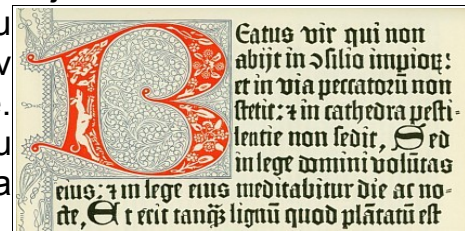 Beatus vir qui non
abijt in ↄsilio impioꝝ:
et in via peccatorū non
stetit: ⁊ in cathedra pesti-
lentie non sedit, Sed
in lege domini volūtas
eius: ⁊ in lege eius meditabitur die ac no-
cte, Et erit tanq̄ꝫ lignū quod plātatū est